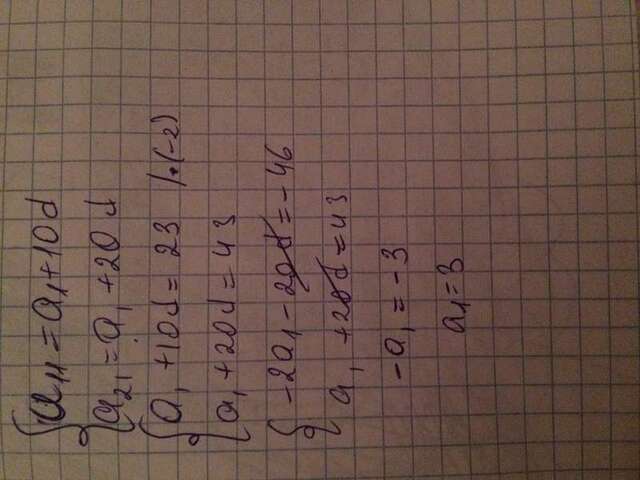 a₁₁ = a₁ + 10d
a₂₁ = a₁ + 20d
a₁ + 10d = 23 /·(-2)
a₁ + 20d = 43
-2a₁ - 20d = -46
a₁ + 20d = 43
-a₁ = -3
a₁ = 3